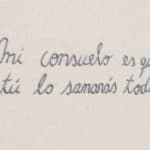 mi consuelo es que
tú lo sanarás todo